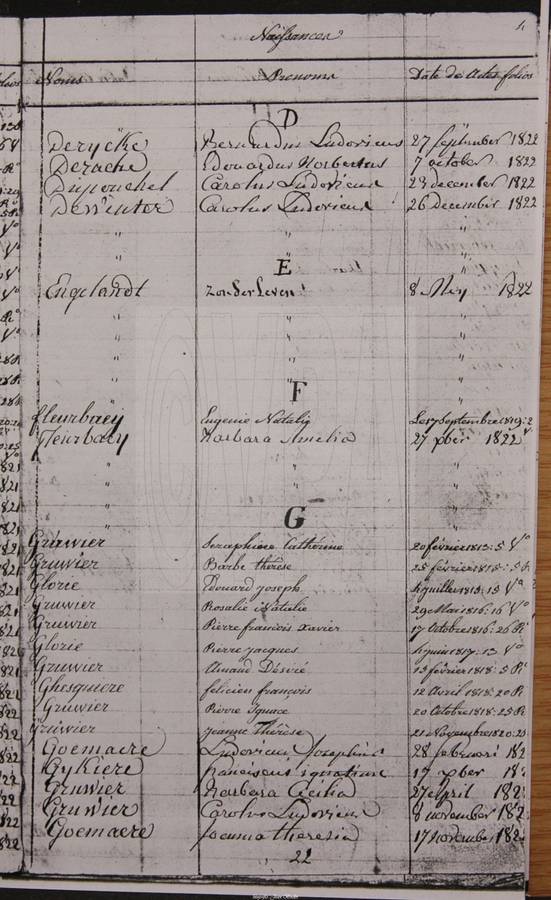 4
Naissances
Noms Prenoms Date de Actes folios
D
Derycke Bernardus Ludovicus 27 september 1822
Derache Edouardus Norbertus 7 october 1822
Dujouchel Carolus Ludovicus 23 december 1822
Dewinter Carolus Ludovicus 26 december 1822
" " "
E
Engelandt zonder Leven 8 Mey 1822
" " "
" "
" " "
"
F
fleurbaey Eugenie Natalie Le 17 Septembre 1819:2
fleurbaey Barbara Amelia 27 xber 1822
" " "
" "
" " "
G
Gruwier Seraphine Catherine 20 février 1813: 5 Vo
Gruwier Barbe thérèse 25 février 1815: 5 R
Glorie Edouard joseph juillet 1815: 15 Vo
Gruwier Rosalie Natalie 29 Mai 1816: 16 Vo
Gruwier Pierre francois xavier 17 Octobre 1816: 26 Ro
Glorie Pierre jacques juin 1817: 13 Vo
Gruwier Amand Désiré 13 février 1818: 5 Ro
Ghesquiere felicien françois 12 Avril 1818: 20 R
Gruwier Pierre Ignace 20 Octobre 1818: 25 R
Gruwier jeanne Thérèse 21 Novembre 1820: 25
Goemaere Ludovicus Josephus 28 februari 182
Gykiere franciscus ignatius 17 xber 18
Gruwier Barbara Cecilia 27 april 182
Gruwier Carolus Ludovicus 8 november 182
Goemaere jacoma theresia 17 november 182
22